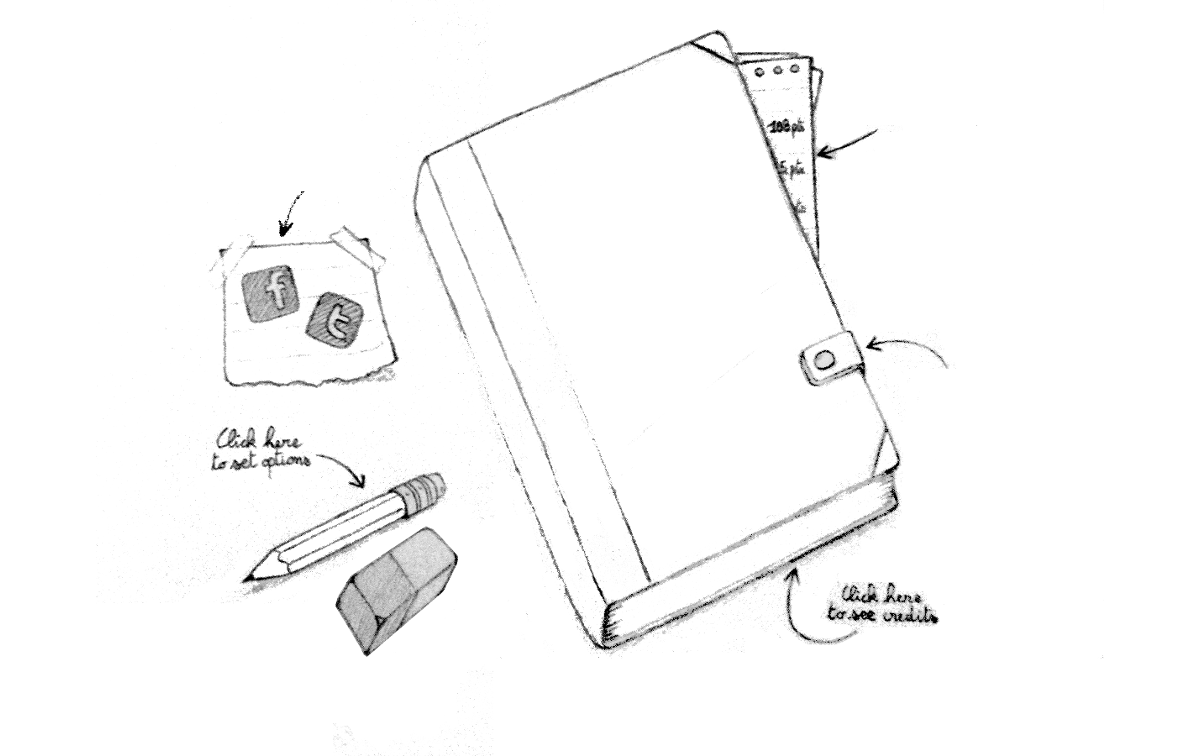 108 pts
5 pts
pts
f
t
Click here
to set options
Click here
to see credits